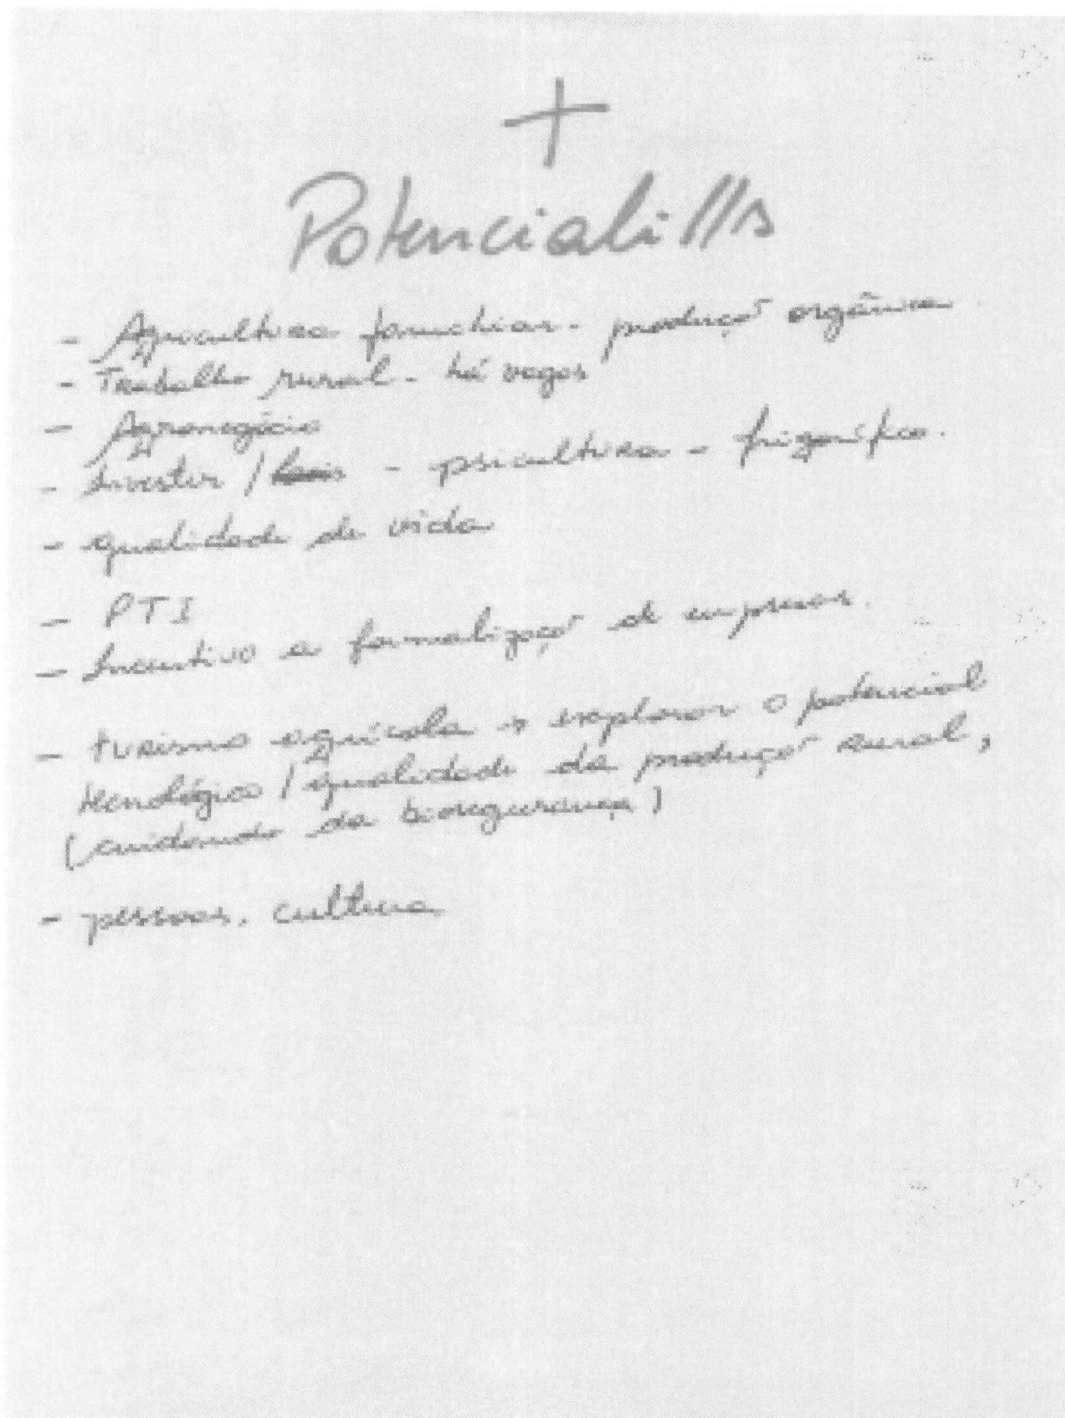 +
Potenciali//s
- Agricultura familiar - produç~ orgânica
- Trabalho rural - há vagas
- Agronegócio
- Investir / - psicultura - frigorífico.
- qualidade de vida
- PTI
- Incentivo a formalizaç~ de empresas.
- turismo agrícola → explorar o potencial
tecnológico / qualidade da produç~ rural,
(cuidando da biosegurança)
- pessoas, cultura